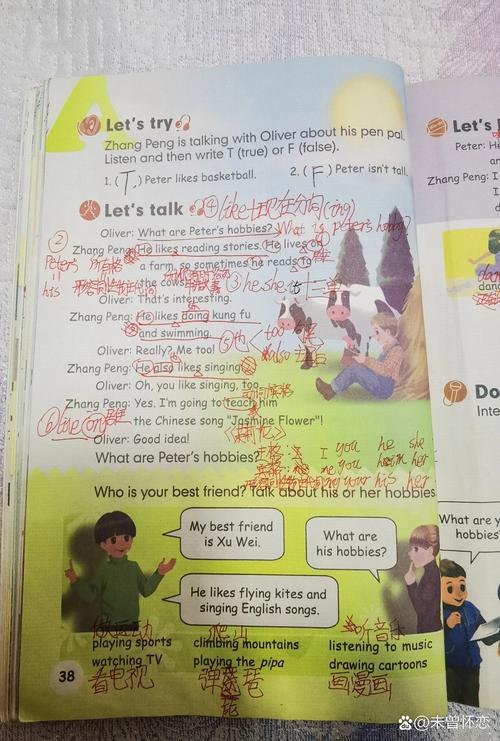 Let's try
Zhang Peng is talking with Oliver about his pen pal.
Listen and then write T (true) or F (false).
1. (T) Peter likes basketball. 2. (F) Peter isn't tall.
Let's talk ④ like+现在分词(ing)
Oliver: What are Peter's hobbies? What is Peter's hobby?
② Zhang Peng: He likes reading stories. He lives on
Peter's 所有格 a farm, so sometimes he reads to
his the cows. ③ he she it 三单
Oliver: That's interesting.
Zhang Peng: He likes doing kung fu
and swimming. ⑤ 也 too
Oliver: Really? Me too! also
Zhang Peng: He also likes singing.
Oliver: Oh, you like singing, too.
Zhang Peng: Yes. I'm going to teach him
⑥ live on the Chinese song "Jasmine Flower"!
Oliver: Good idea! 《茉莉花》
What are Peter's hobbies? 主格: I you he she
me you him her
your his her
Who is your best friend? Talk about his or her hobbies
My best friend
is Xu Wei.
What are
his hobbies?
He likes flying kites and
singing English songs.
做运动 爬山 听音乐
playing sports climbing mountains listening to music
watching TV playing the pipa drawing cartoons
看电视 弹琵琶 画漫画
38
Let's
Peter: He
an
Zhang Peng: I
danc
Do
Inte
What are y
hobbies?
未曾怀恋